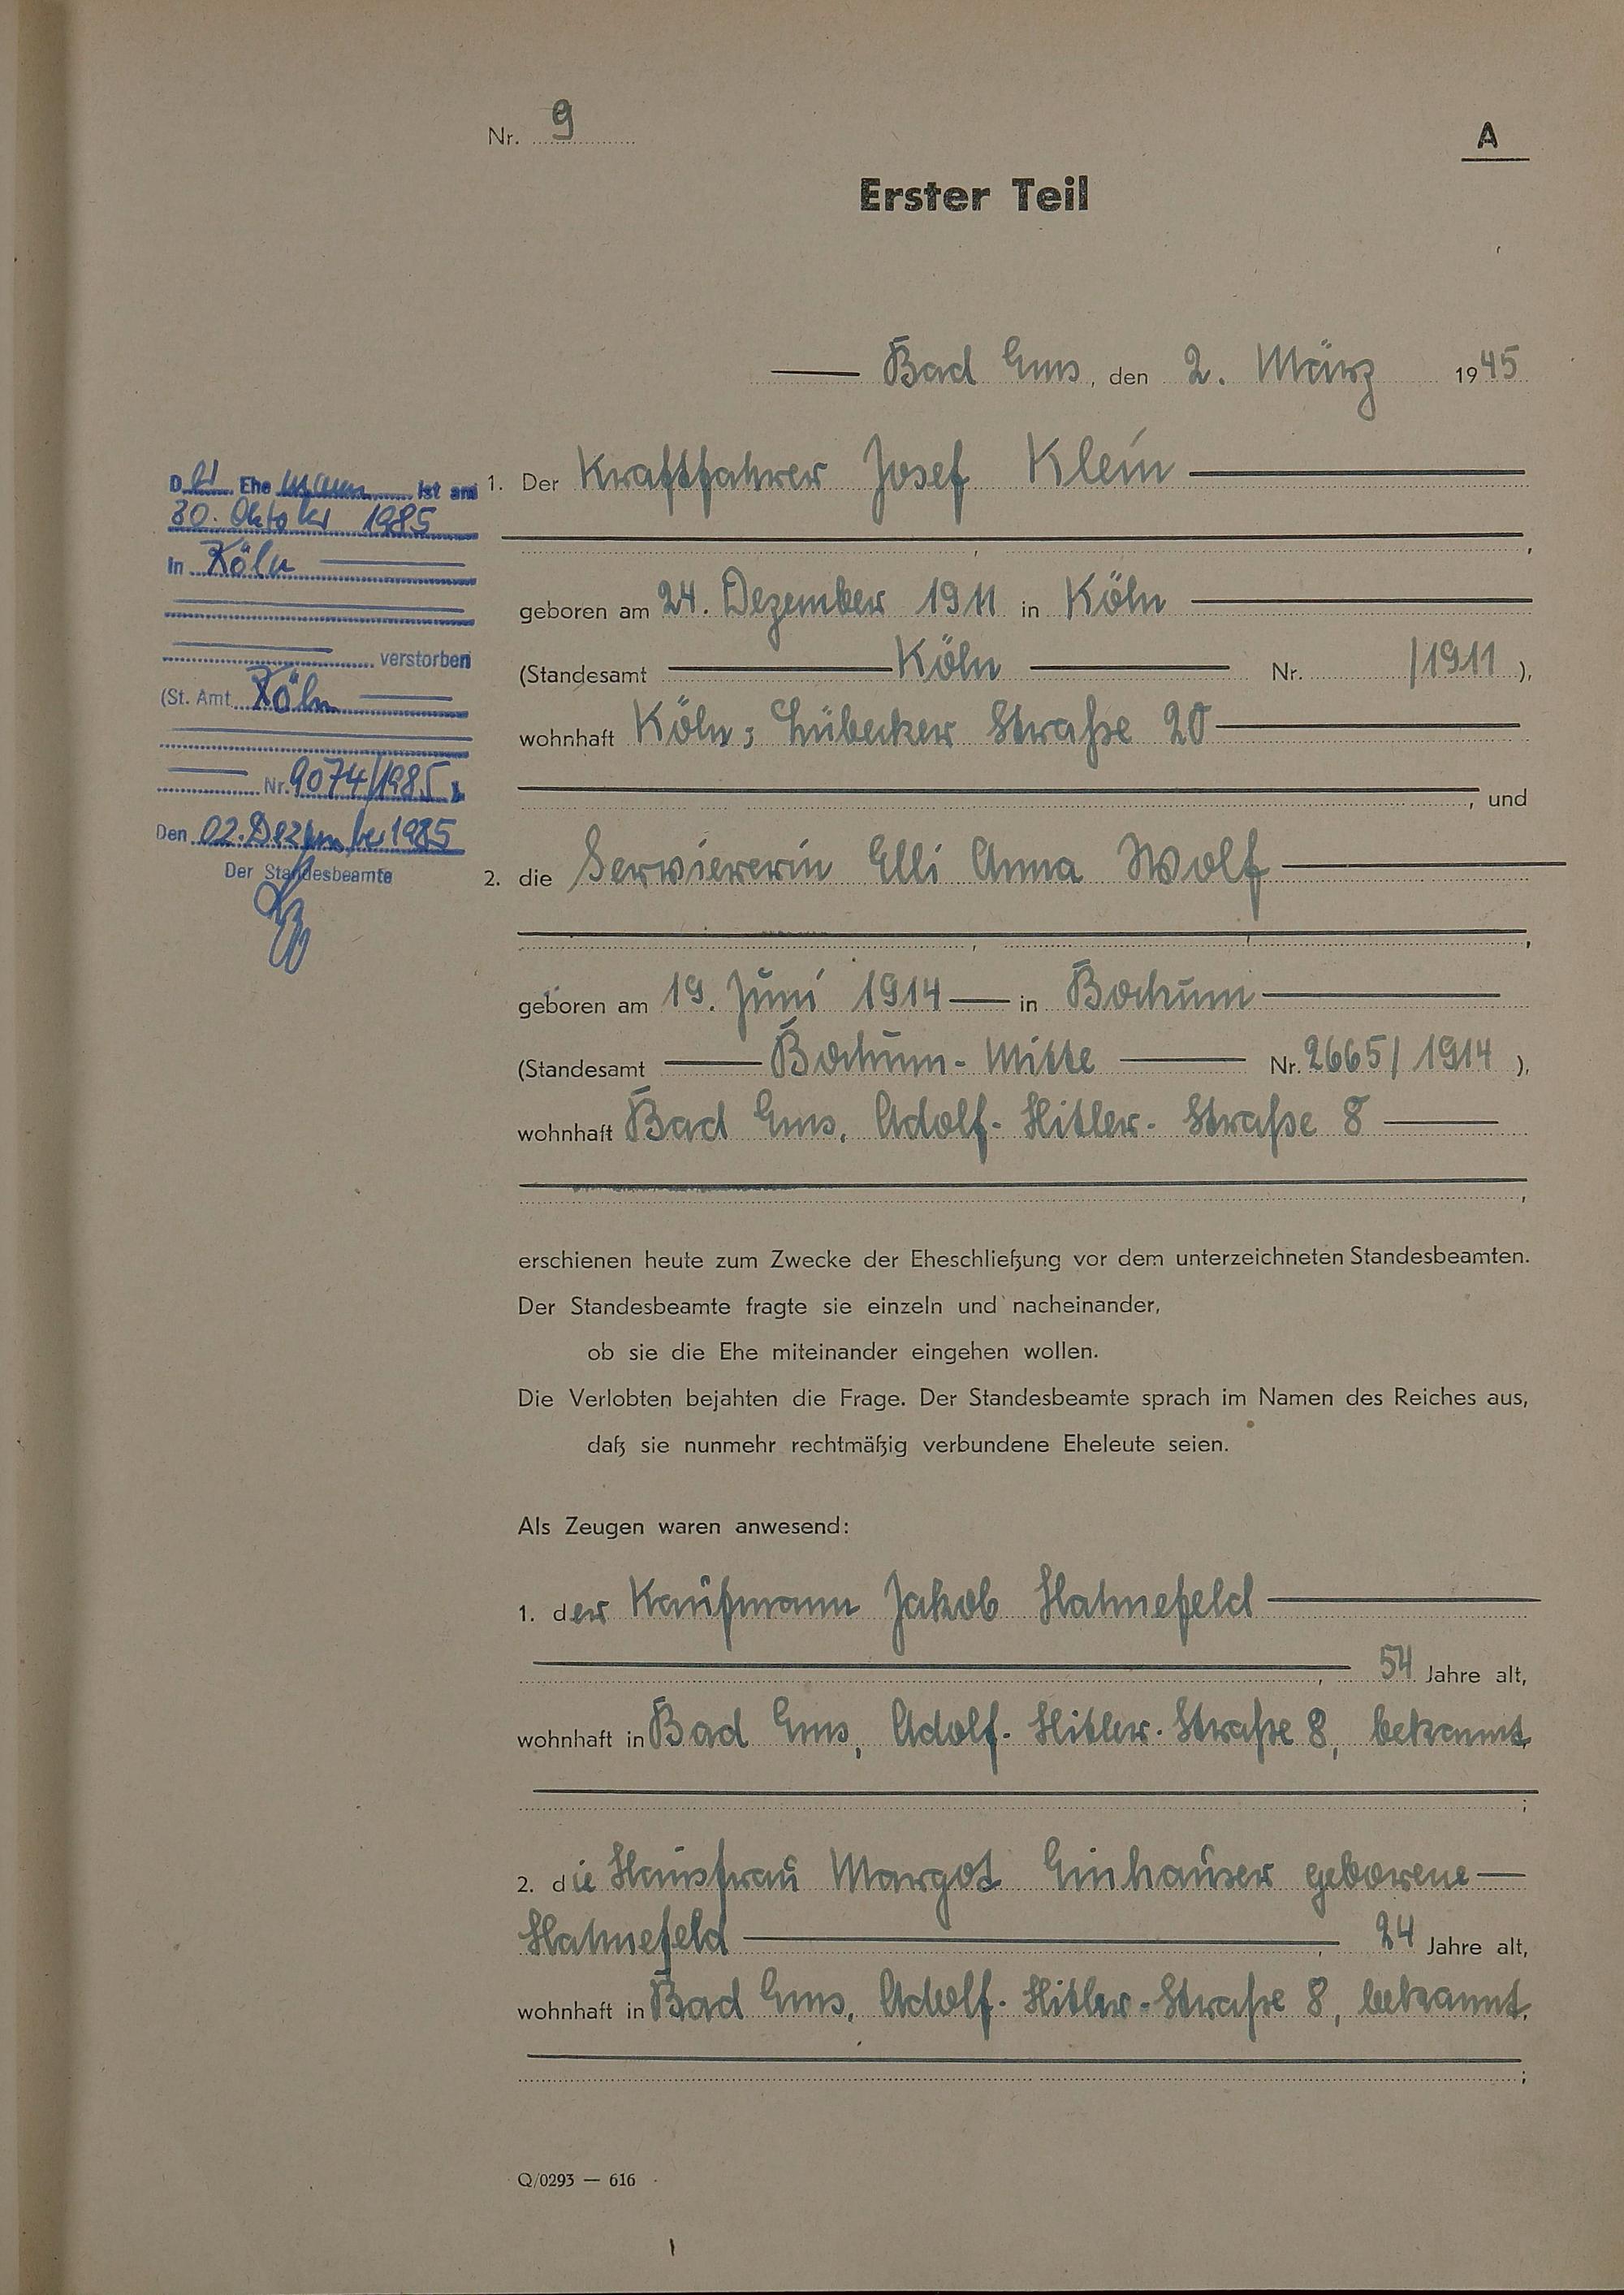 Nr. 9
A
Erster Teil
Bad Ems, den 2. März 1945
1. Der Kraftfahrer Josef Klein
geboren am 24. Dezember 1911 in Köln
(Standesamt Köln Nr. /1911),
wohnhaft Köln, Lübecker Straße 20
, und
2. die Serviererin Elli Anna Wolf
geboren am 19. Juni 1914 in Bochum
(Standesamt Bochum-Mitte Nr. 2665/1914),
wohnhaft Bad Ems, Adolf-Hitler-Straße 8
erschienen heute zum Zwecke der Eheschließung vor dem unterzeichneten Standesbeamten.
Der Standesbeamte fragte sie einzeln und nacheinander,
ob sie die Ehe miteinander eingehen wollen.
Die Verlobten bejahten die Frage. Der Standesbeamte sprach im Namen des Reiches aus,
daß sie nunmehr rechtmäßig verbundene Eheleute seien.
Als Zeugen waren anwesend:
1. der Kaufmann Jakob Hahnefeld
, 54 Jahre alt,
wohnhaft in Bad Ems, Adolf-Hitler-Straße 8, bekannt
;
2. die Hausfrau Margot Einhäuser geborene
Hahnefeld, 24 Jahre alt,
wohnhaft in Bad Ems, Adolf-Hitler-Straße 8, bekannt,
;
Q/0293 — 616
Der Ehemann ist am
30. Oktober 1985
in Köln
verstorben
(St. Amt Köln
Nr. 9074/1985).
Den 02. Dezember 1985
Der Standesbeamte